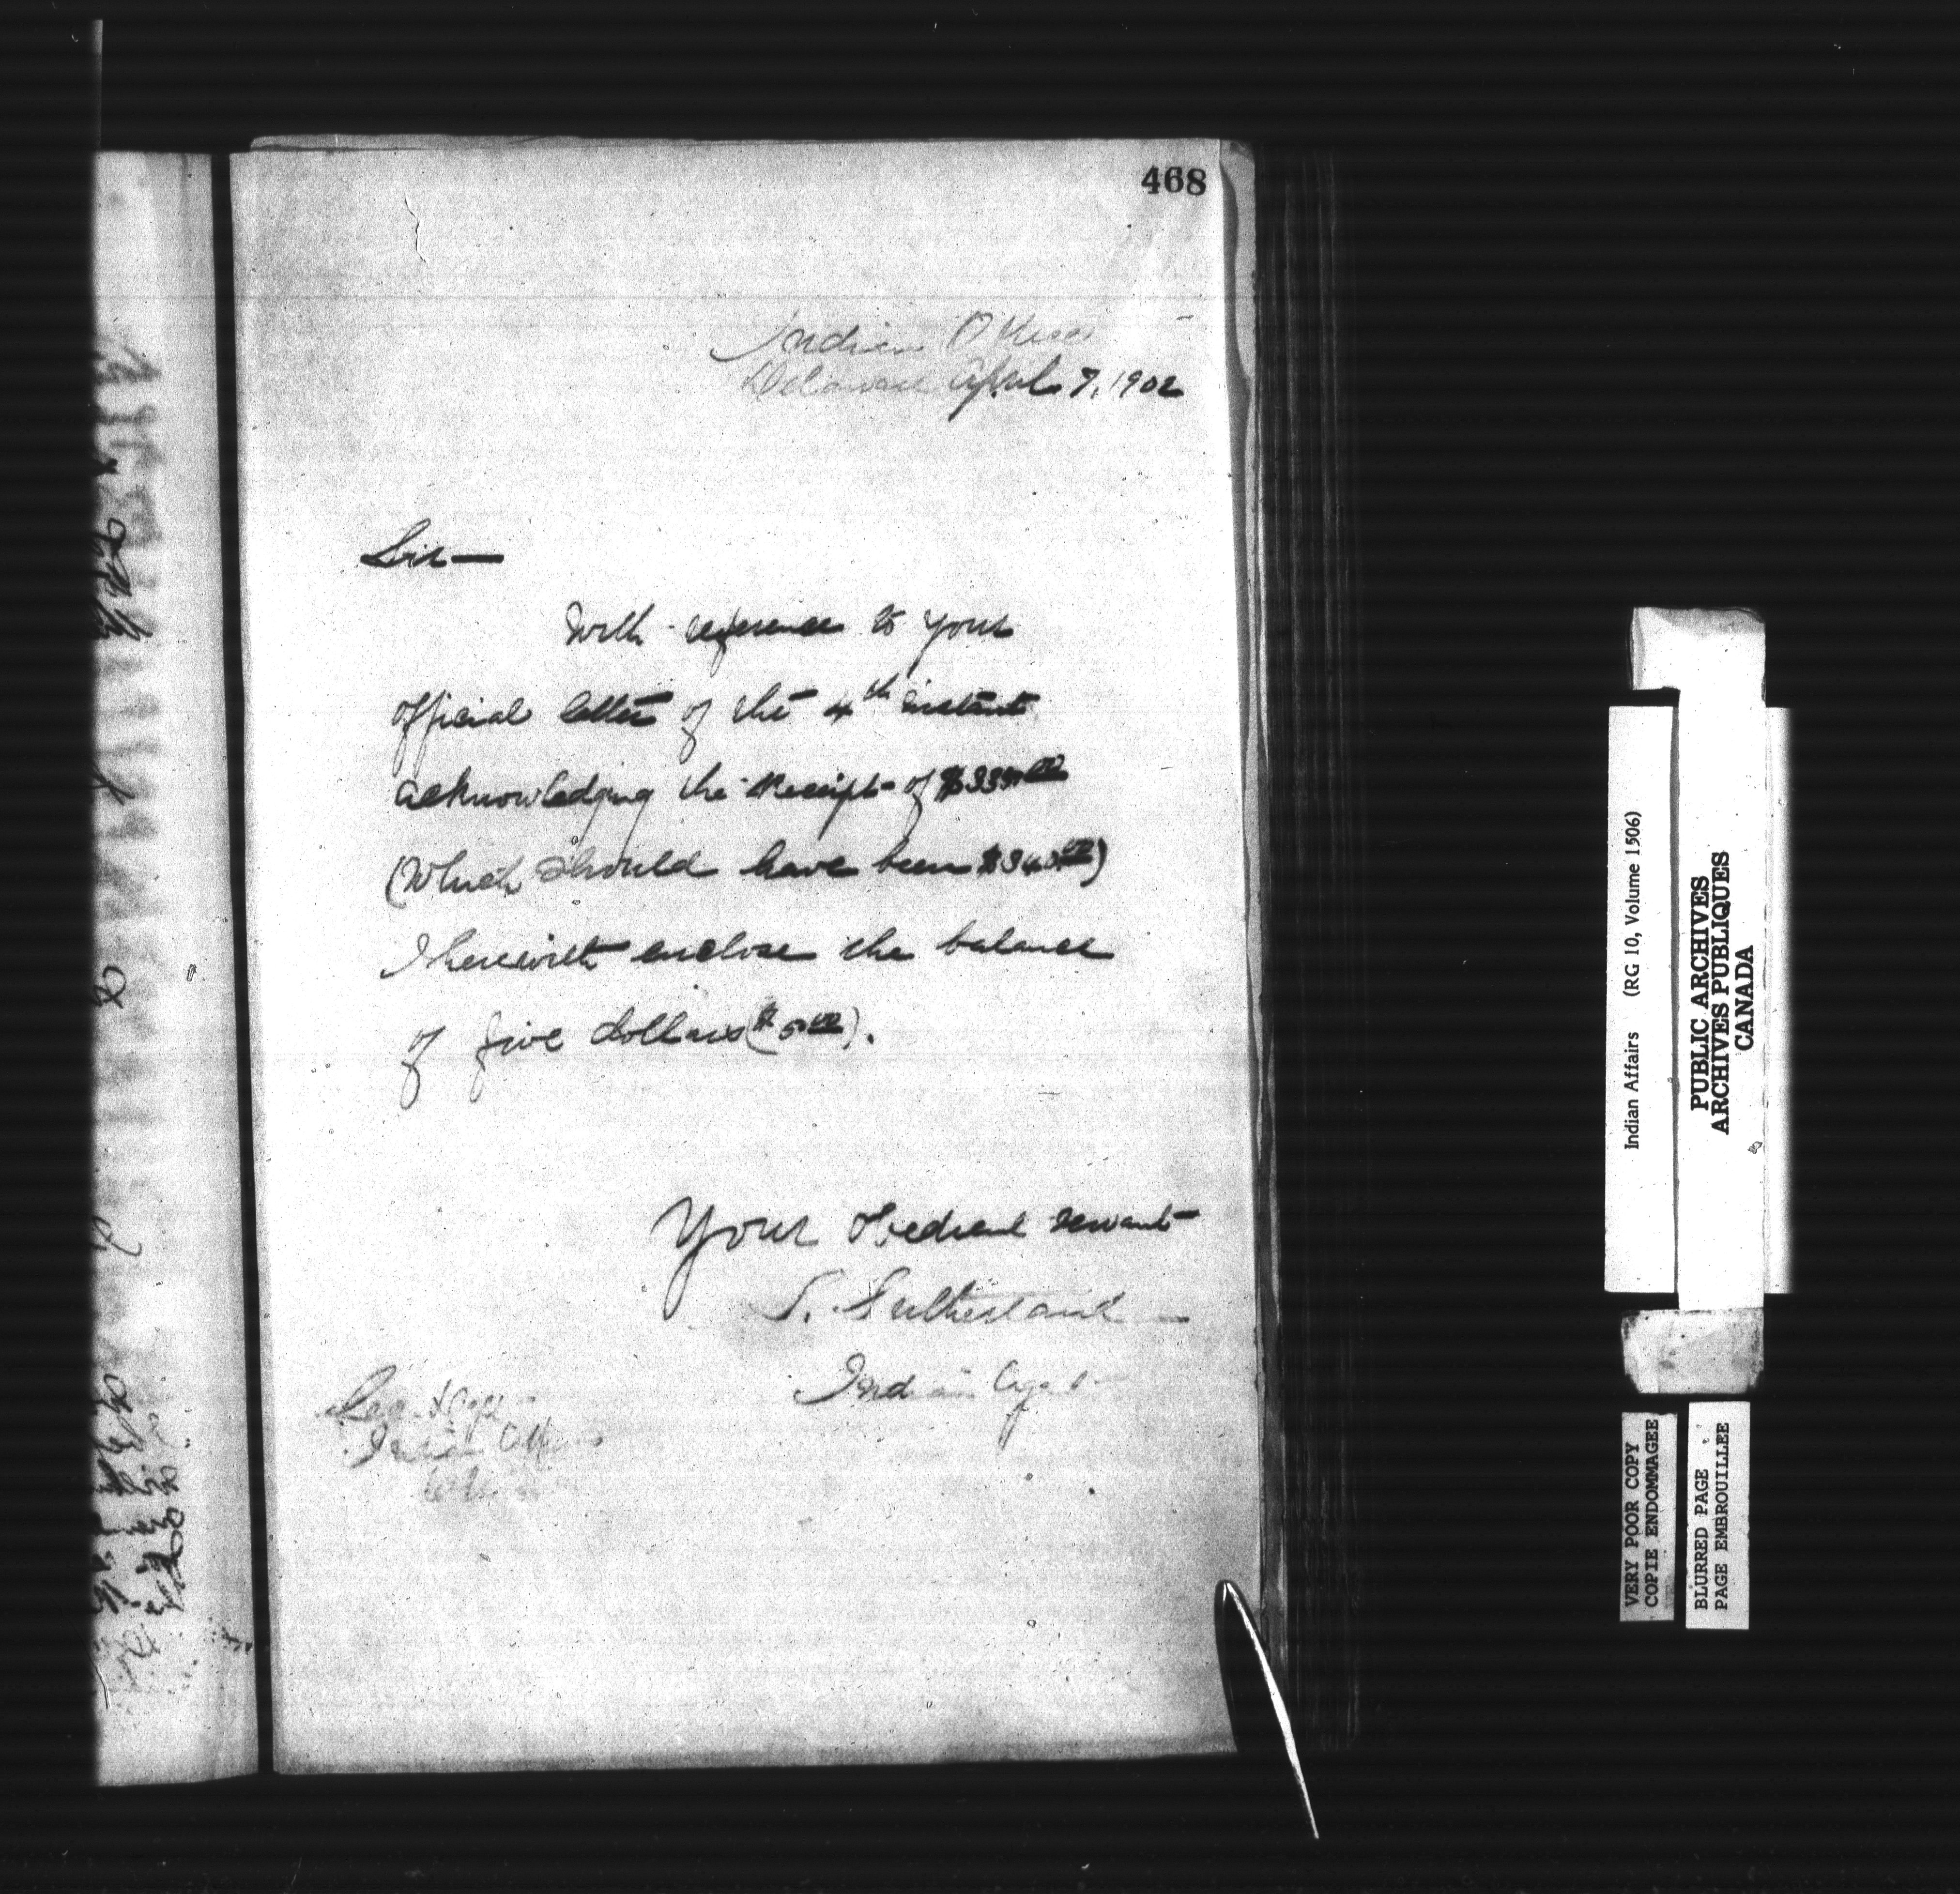 468
Indian Office
Delaware April 7, 1902
Sir—
With reference to your
official letter of the 4th instant
acknowledging the receipt of $335.00
(Which should have been $340.00)
I herewith enclose the balance
of five dollars ($5.00).
Your Obedient servant
S. Sutherland
Indian Agent
Indian Affairs
Indian Affairs (RG 10, Volume 1506)
PUBLIC ARCHIVES
ARCHIVES PUBLIQUES
CANADA
VERY POOR COPY
COPIE ENDOMMAGEE
BLURRED PAGE
PAGE EMBROUILLEE